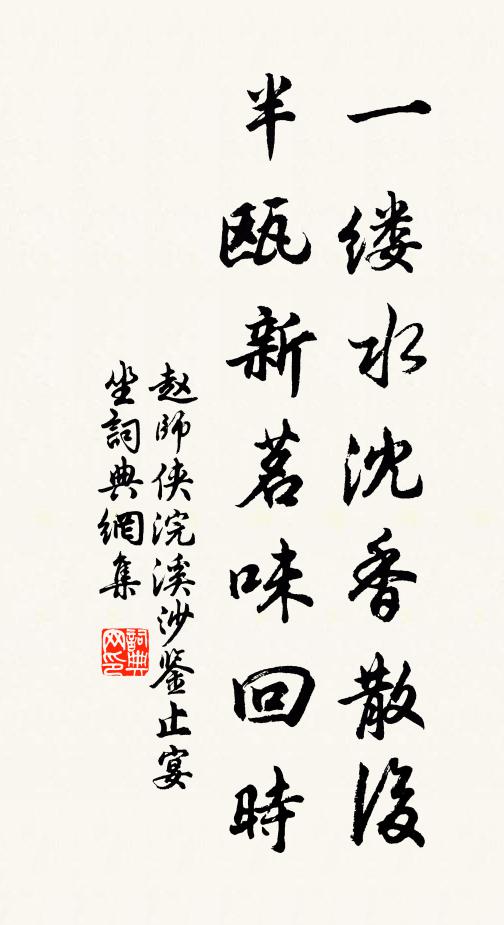 一缕水沈香散後
半瓯新茗味回時
赵師侠浣溪沙鉴止宴
坐詞典網集
詞典网印